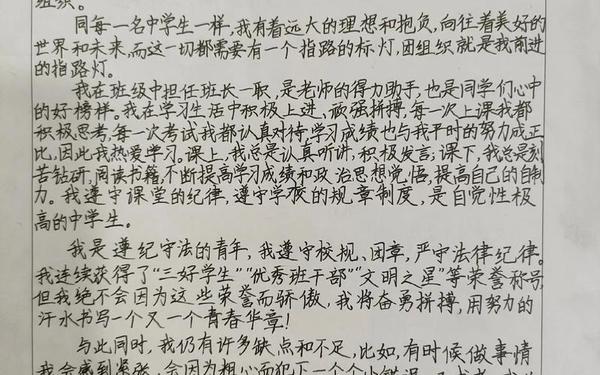 组织。
同每一名中学生一样,我有着远大的理想和抱负,向往着美好的
世界和未来,而这一切都需要有一个指路的标灯,团组织就是我前进
的指路灯。
我在班级中担任班长一职,是老师的得力助手,也是同学们心中
的好榜样。我在学习生活中积极上进,顽强拼搏,每一次上课我都
积极思考,每一次考试我都认真对待,学习成绩也与我平时的努力成正
比,因此我热爱学习。课上,我总是认真听讲,积极发言;课下,我总是刻
苦钻研,阅读书籍,不断提高学习成绩和政治思想觉悟,提高自己的自制
力。我遵守课堂的纪律,遵守学校的规章制度,是自觉性极
高的中学生。
我是遵纪守法的青年,我遵守校规、团章,严守法律纪律。
我连续获得了“三好学生”“优秀班干部”“文明之星”等荣誉称号,
但我绝不会因为这些荣誉而骄傲,我将奋勇拼搏,用努力的
汗水书写一个又一个青春华章!
与此同时,我仍有许多缺点和不足,比如,有时候做事情
我会感到紧张,会因为粗心而犯下一个个小错误